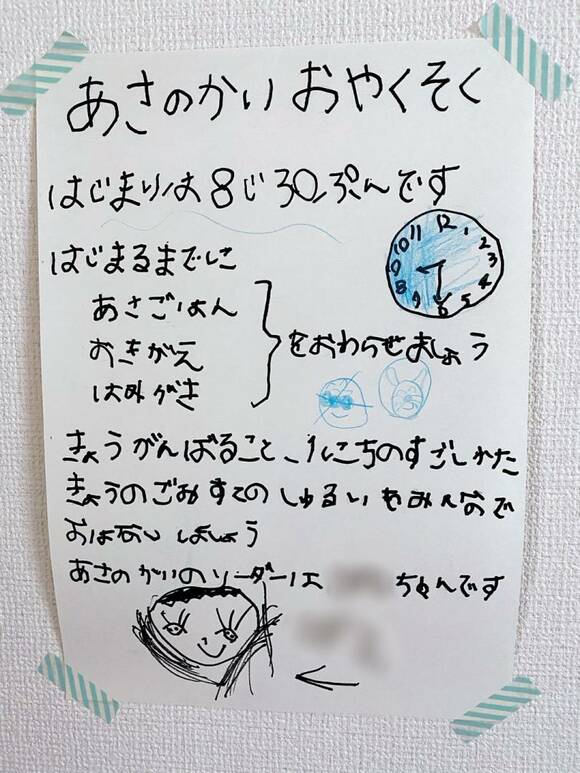 あさのかい おやくそく
はじまりは8じ30ぷんです
はじまるまでに
あさごはん
おきがえ
はみがき
をおわらせましょう
12 1 2 3 4 5 6 9 8 9 10 11
きょうがんばること、1にちのすごしかた
きょうのごみすてのしゅるいをみんなで
おはなししましょう
あさのかいのリーダーは ちゃんです